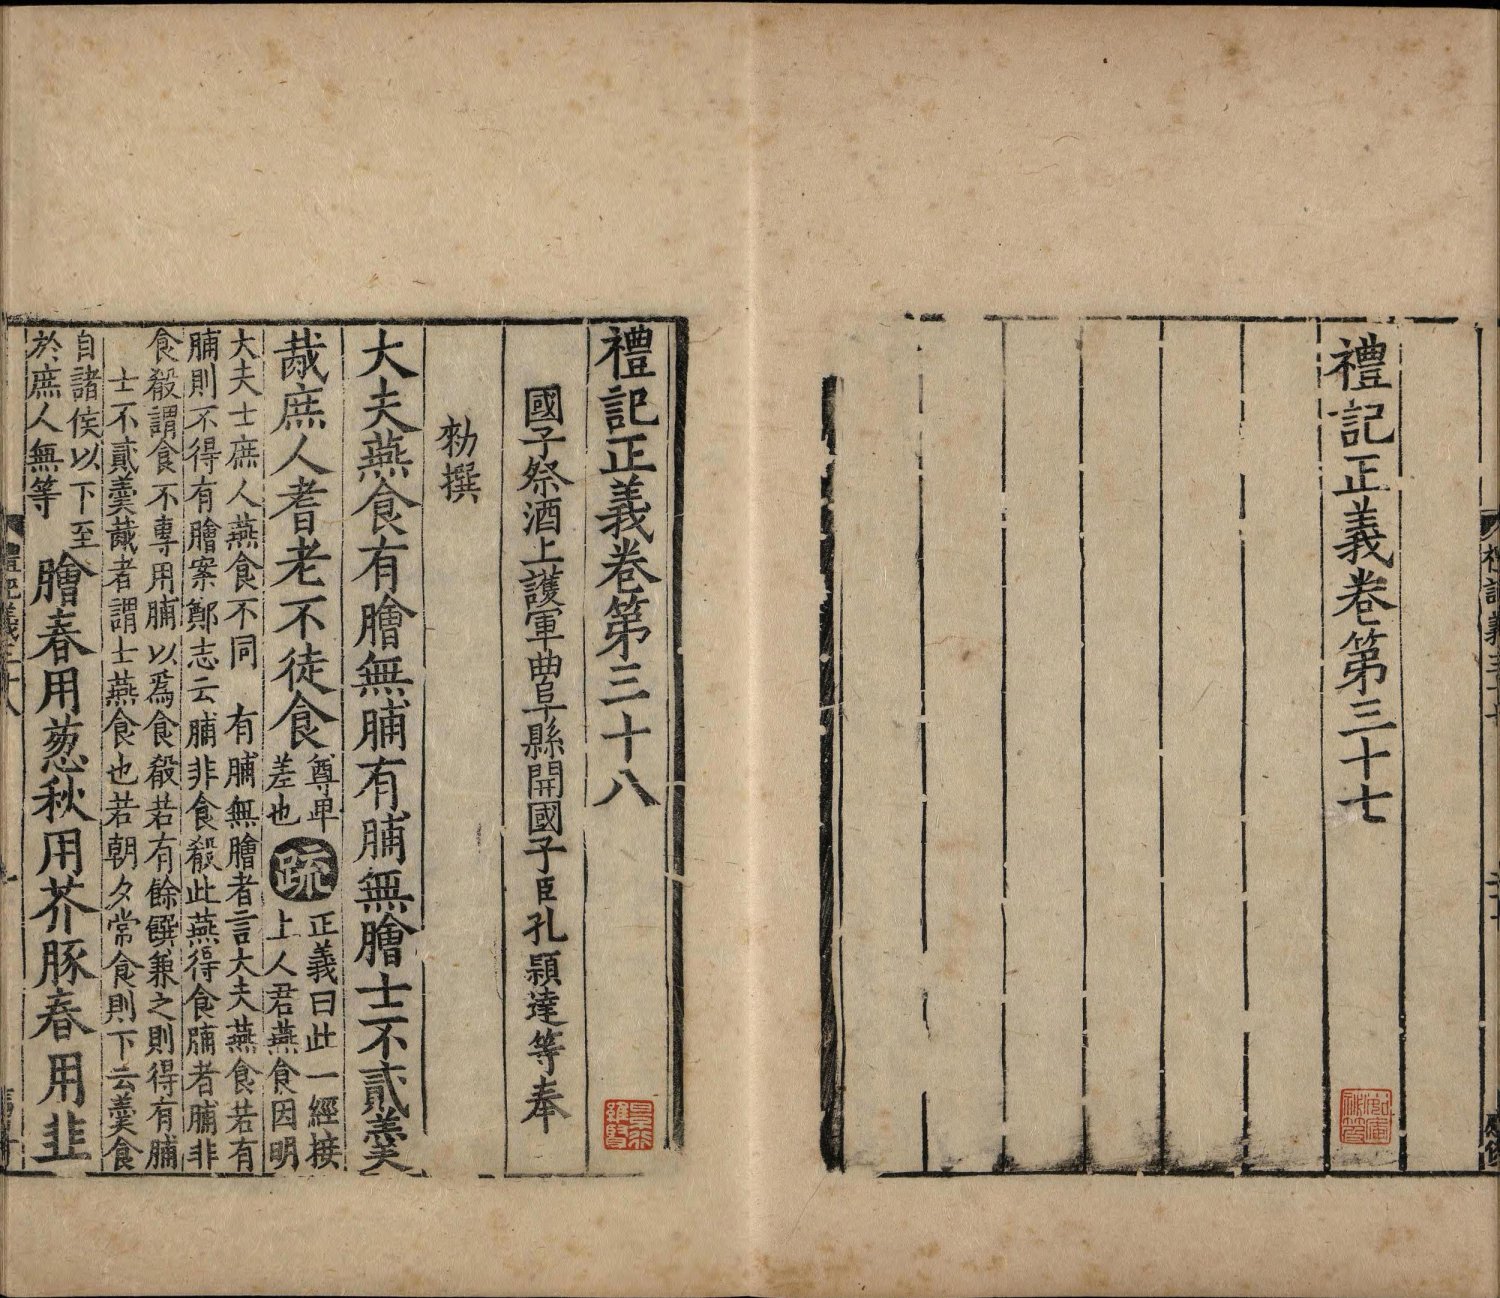 禮記正義卷第三十七
禮記正義卷第三十八
國子祭酒上護軍曲阜縣開國子臣孔穎達等奉
勑撰
大夫燕食有膾無脯有脯無膾士不貳羹
胾庶人耆老不徒食
尊卑
差也
疏
正義曰此一經接
上人君燕食因明
大夫士庶人燕食不同　有脯無膾者言大夫燕食若有
脯則不得有膾案鄭志云脯非食殽此燕得食脯者脯非
食殽謂食不專用脯以爲食殽若有餘饌兼之則得有脯
士不貳羹胾者謂士燕食也若朝夕常食則下云羹食
自諸侯以下至
於庶人無等
膾春用葱秋用芥豚春用韭